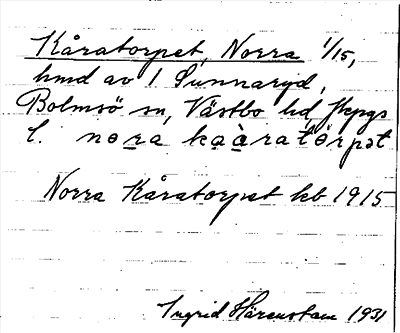 Kåratorpet, Norra 1/15,
hmd av 1 Sunnaryd,
Bolmsö sn, Västbo hd, Jkpgs
l. nora kaàratòrpət
Norra Kåratorpet kb 1915
Ingrid Härenstam 1931